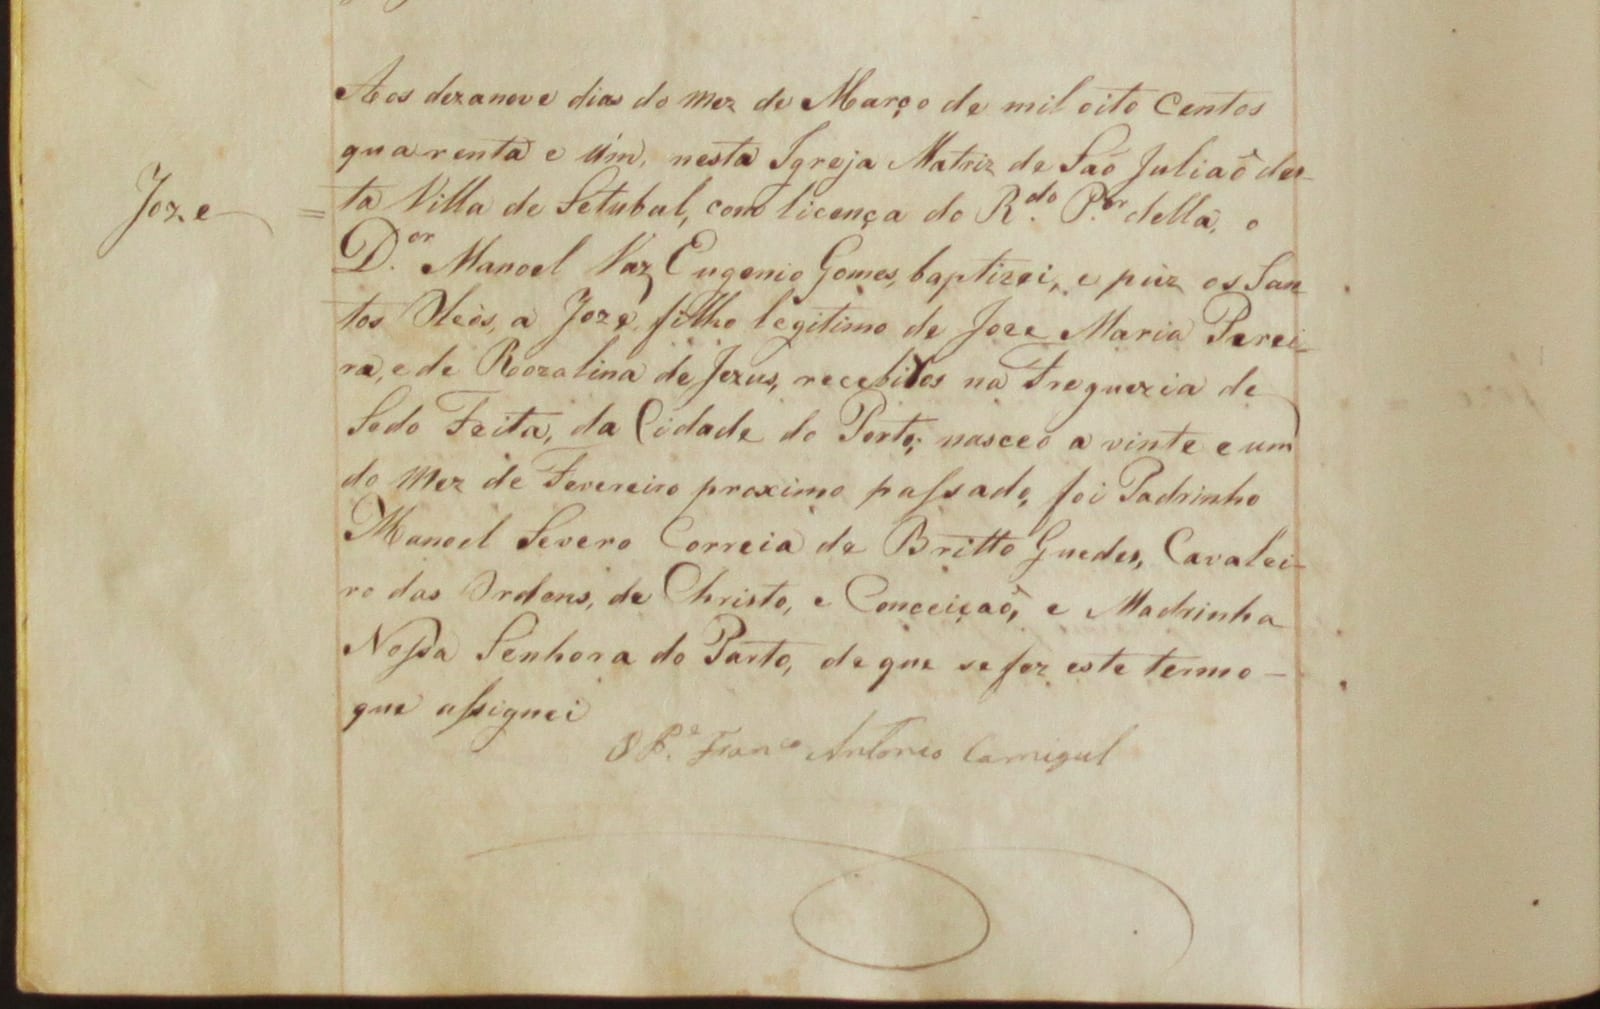 Aos dezanove dias do mez de Março de mil oito centos
quarenta e úm, nesta Igreja Matriz de São Julião des-
Joze = ta Villa de Setubal, com licença do R.do P.or della, o
D.or Manoel Vaz Eugenio Gomes, baptizei, e puz os San
tos Oleos, a Joze, filho legitimo de Joze Maria Perei-
ra, e de Roozalina de Jezus, recebidos na Freguezia de
Sedo Feita, da Cidade do Porto; nasceo a vinte e um
do mez de Fevereiro proximo passado, foi Padrinho
Manoel Severo Correia de Britto Guedes, Cavalei-
ro das Ordens, de Christo, e Conceição, e Madrinha
Nossa Senhora do Parto, de que se fez este termo -
que assignei
O P.e Fran.co Antonio